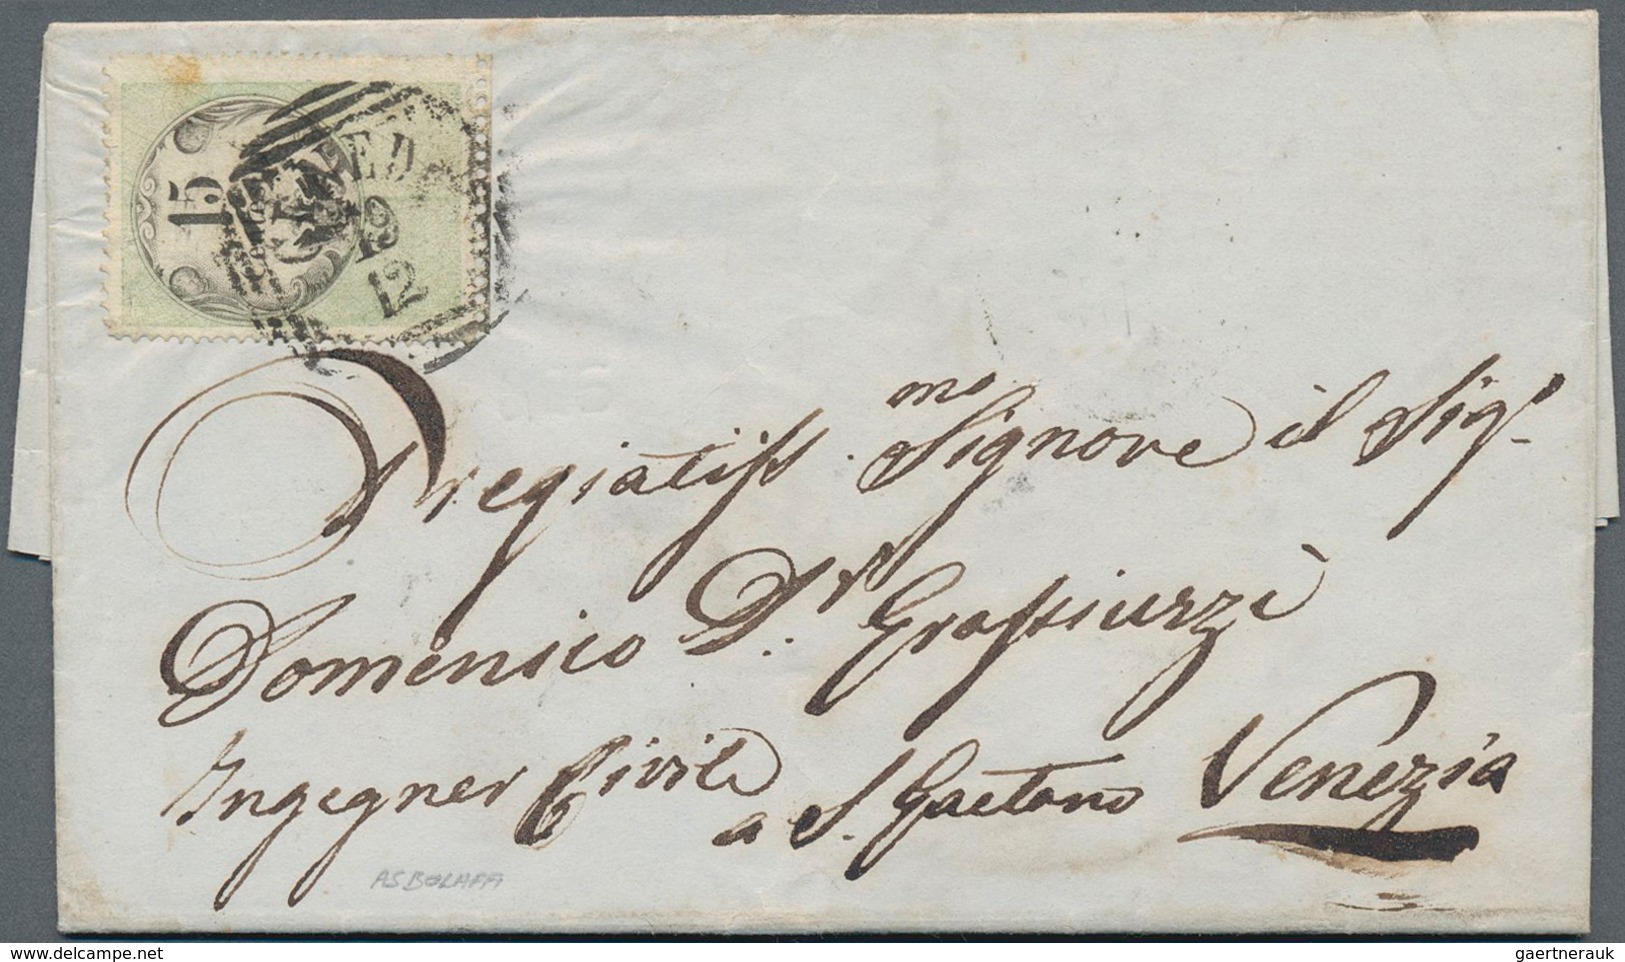 15
CENEDA
19
12
Pregiatiss.me Signore il Sigr.
Domenico Dr. Grassiuzzi
Ingegner Civile
a S. Gaetano Venezia
AS BOLAFFI
www.delcampe.net
gaertnerauk